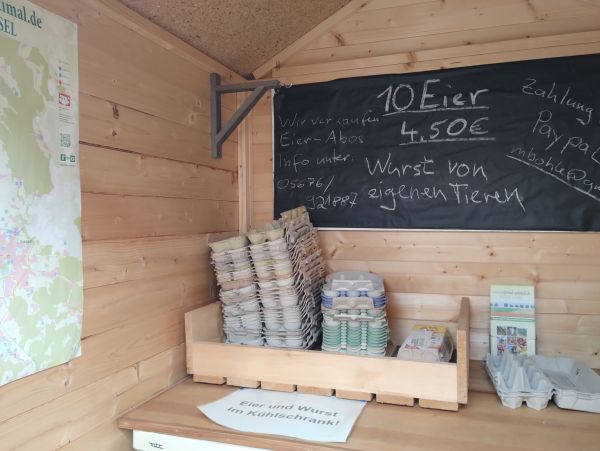 imal.de
SEL
10 Eier
4.50€
Wir verkaufen
Eier-Abos
Info unter:
05676/
921887
Wurst von
eigenen Tieren
Zahlung
Paypal
Eier und Wurst
im Kühlschrank!